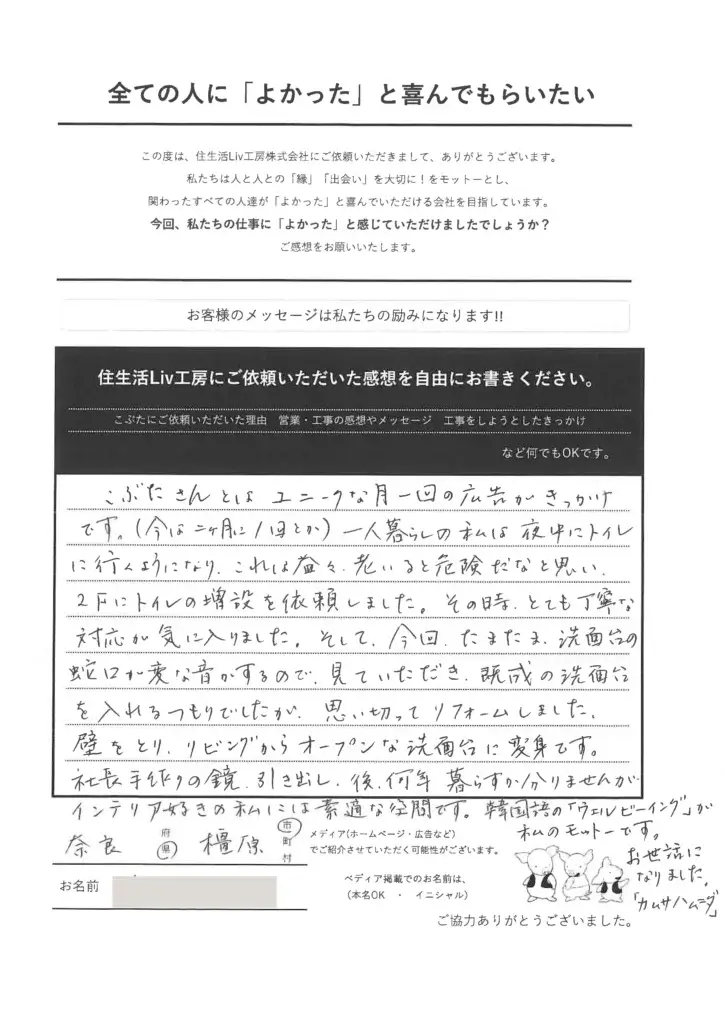 全ての人に「よかった」と喜んでもらいたい
この度は、住生活Liv工房株式会社にご依頼いただきまして、ありがとうございます。
私たちは人と人との「縁」「出会い」を大切に！をモットーとし、
関わったすべての人達が「よかった」と喜んでいただける会社を目指しています。
今回、私たちの仕事に「よかった」と感じていただけましたでしょうか？
ご感想をお願いいたします。
お客様のメッセージは私たちの励みになります!!
住生活Liv工房にご依頼いただいた感想を自由にお書きください。
こぶたにご依頼いただいた理由　営業・工事の感想やメッセージ　工事をしようとしたきっかけ
など何でもOKです。
こぶたさんとは ユニークな月一回の広告がきっかけ
です。(今は二ヶ月に1回とか) 一人暮らしの私は 夜中にトイレ
に行くようになり、これは益々、老いると危険だなと思い、
2Fにトイレの増設を依頼しました。その時、とても丁寧な
対応が気に入りました。そして、今回、たまたま、洗面台の
蛇口が変な音がするので、見ていただき、既成の洗面台
を入れるつもりでしたが、思い切ってリフォームしました。
壁をとり、リビングからオープンな洗面台に変身です。
社長手作りの鏡、引き出し、後、何年 暮らすか分りませんが
インテリア好きの私には素適な空間です。韓国語の「ウェルビーイング」が
私のモットーです。
お世話に
なりました。
「カムサハムニダ」
奈良 府県 橿原 市町村
メディア(ホームページ・広告など)
でご紹介させていただく可能性がございます。
お名前
ペディア掲載でのお名前は、
(本名OK　・　イニシャル)
ご協力ありがとうございました。